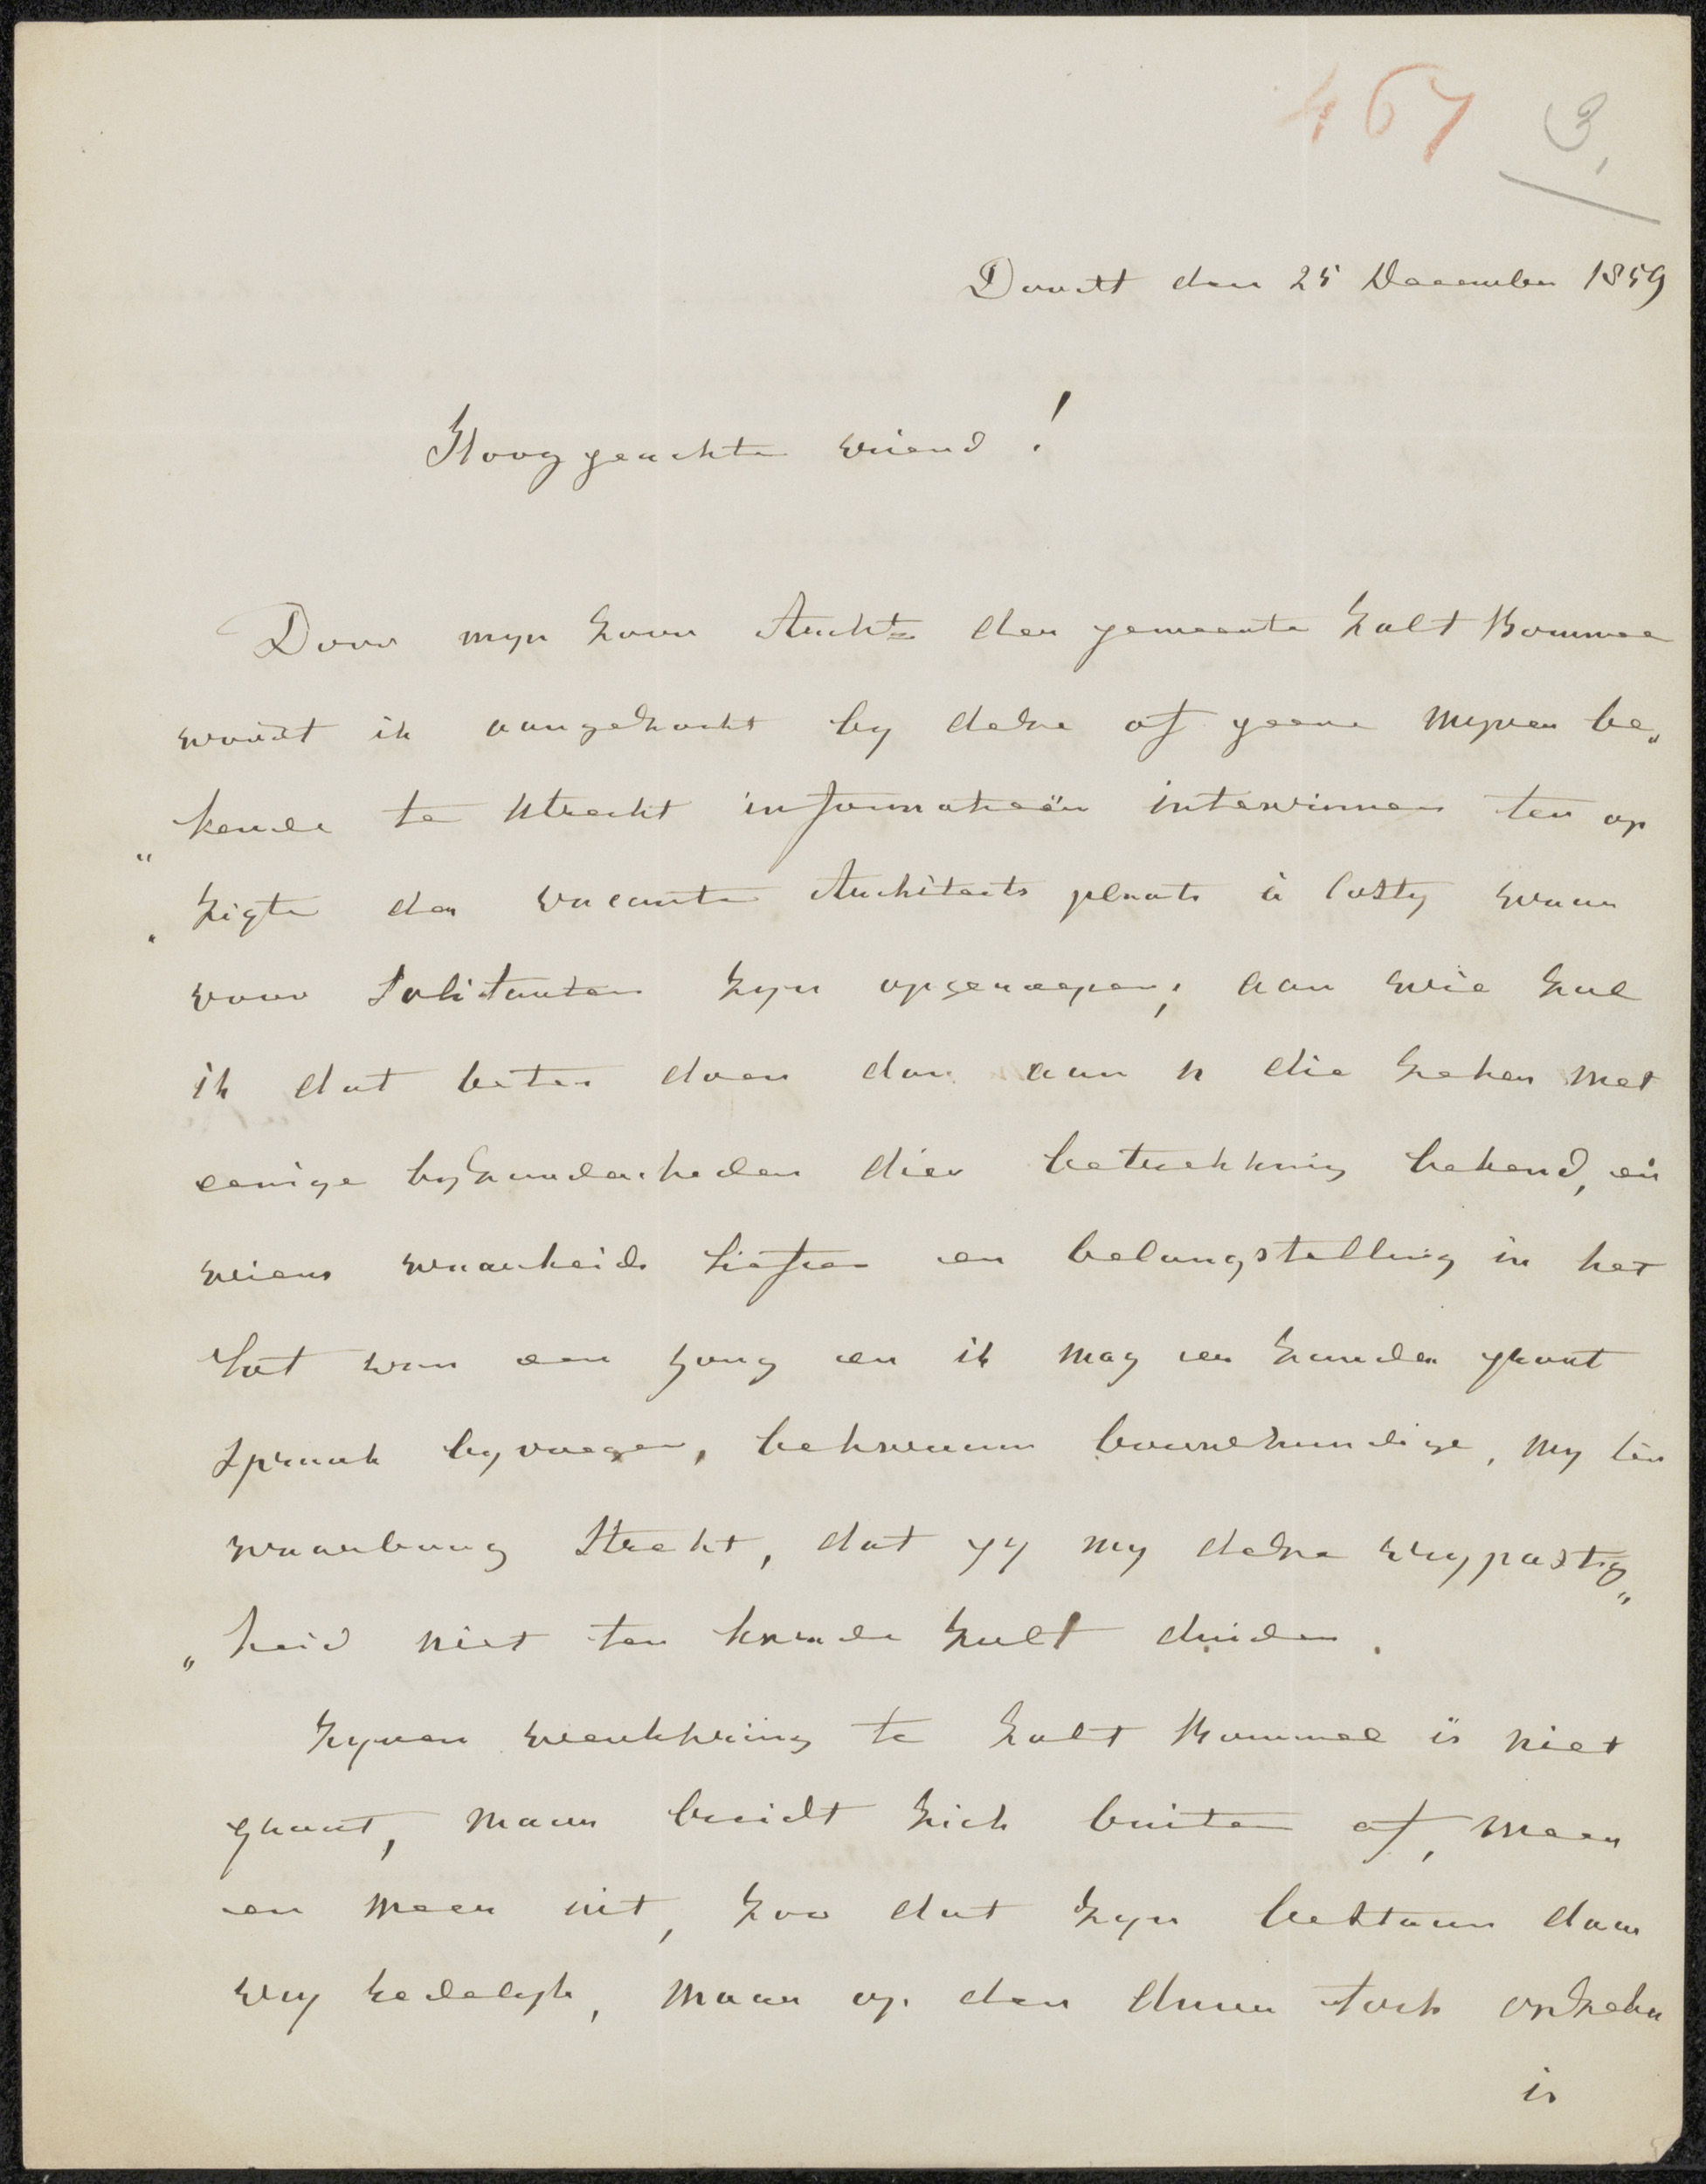 467 3,
Dordt den 25 December 1859
Hooggeachte vriend !
Door myn zoon Archt. der gemeente Zalt Bommel
wordt ik aangezocht by deze of geene myner be„
„kende te Utrecht informatieën intewinnen ten op
„zigte der vacante Architects plaats à costy waar
voor Solitanten zyn opgeroepen; aan wie zal
ik dat beter doen dan aan u die zeker met
eenige byzonderheden dier betrekking bekend, en
wiens waarheids liefde en belangstelling in het
Lot van een jong en ik mag er zonder groot
spraak byvoegen, bekwaam bouwkundige, my ten
waarborg Strekt, dat gy my deze vrypostig„
„heid niet ten kwade zult duiden.
Zynen werkkring te Zalt Bommel is niet
groot, maar breidt zich buiten af, meer
en meer uit, zoo dat zyn bestaan daar
vry redelyk, maar op den duur toch onzeker
is